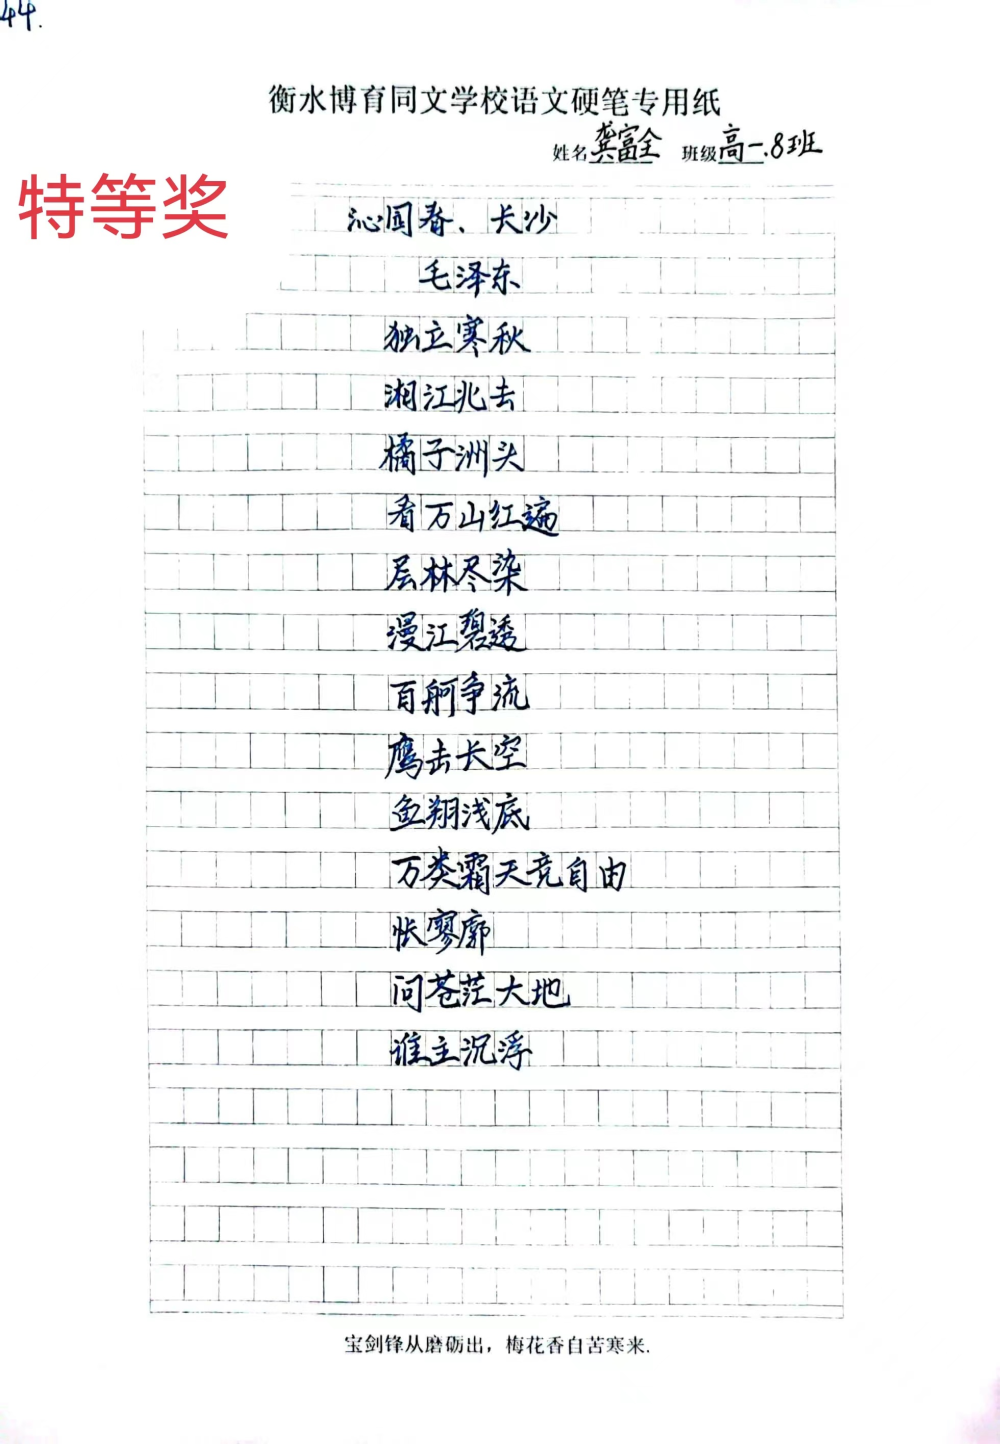 44.
衡水博育同文学校语文硬笔专用纸
姓名龚富全 班级高一.8班
特等奖
沁园春、长沙
毛泽东
独立寒秋
湘江北去
橘子洲头
看万山红遍
层林尽染
漫江碧透
百舸争流
鹰击长空
鱼翔浅底
万类霜天竞自由
怅寥廓
问苍茫大地
谁主沉浮
宝剑锋从磨砺出，梅花香自苦寒来.